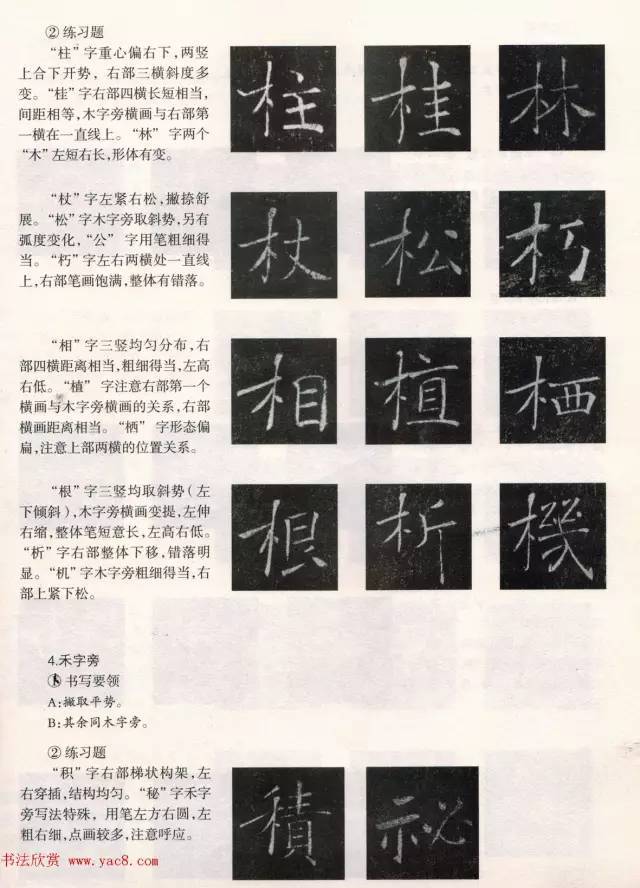 ②练习题
“柱”字重心偏右下，两竖
上合下开势，右部三横斜度多
变。“桂”字右部四横长短相当，
间距相等，木字旁横画与右部第
一横在一直线上。“林”字两个
“木”左短右长，形体有变。
柱 桂 林
“杖”字左紧右松，撇捺舒
展。“松”字木字旁取斜势，另有
弧度变化，“公”字用笔粗细得
当。“朽”字左右两横处一直线
上，右部笔画饱满，整体有错落。
杖 松 朽
“相”字三竖均匀分布，右
部四横距离相当，粗细得当，左高
右低。“植”字注意右部第一个
横画与木字旁横画的关系，右部
横画距离相当。“栖”字形态偏
扁，注意上部两横的位置关系。
相 植 栖
“根”字三竖均取斜势（左
下倾斜），木字旁横画变提，左伸
右缩，整体笔短意长，左高右低。
“析”字右部整体下移，错落明
显。“机”字木字旁粗细得当，右
部上紧下松。
根 析 機
4.禾字旁
①书写要领
A：撇取平势。
B：其余同木字旁。
②练习题
“积”字右部梯状构架，左
右穿插，结构均匀。“秘”字禾字
旁写法特殊，用笔左方右圆，左
粗右细，点画较多，注意呼应。
積 祕
书法欣赏 www.yac8.com